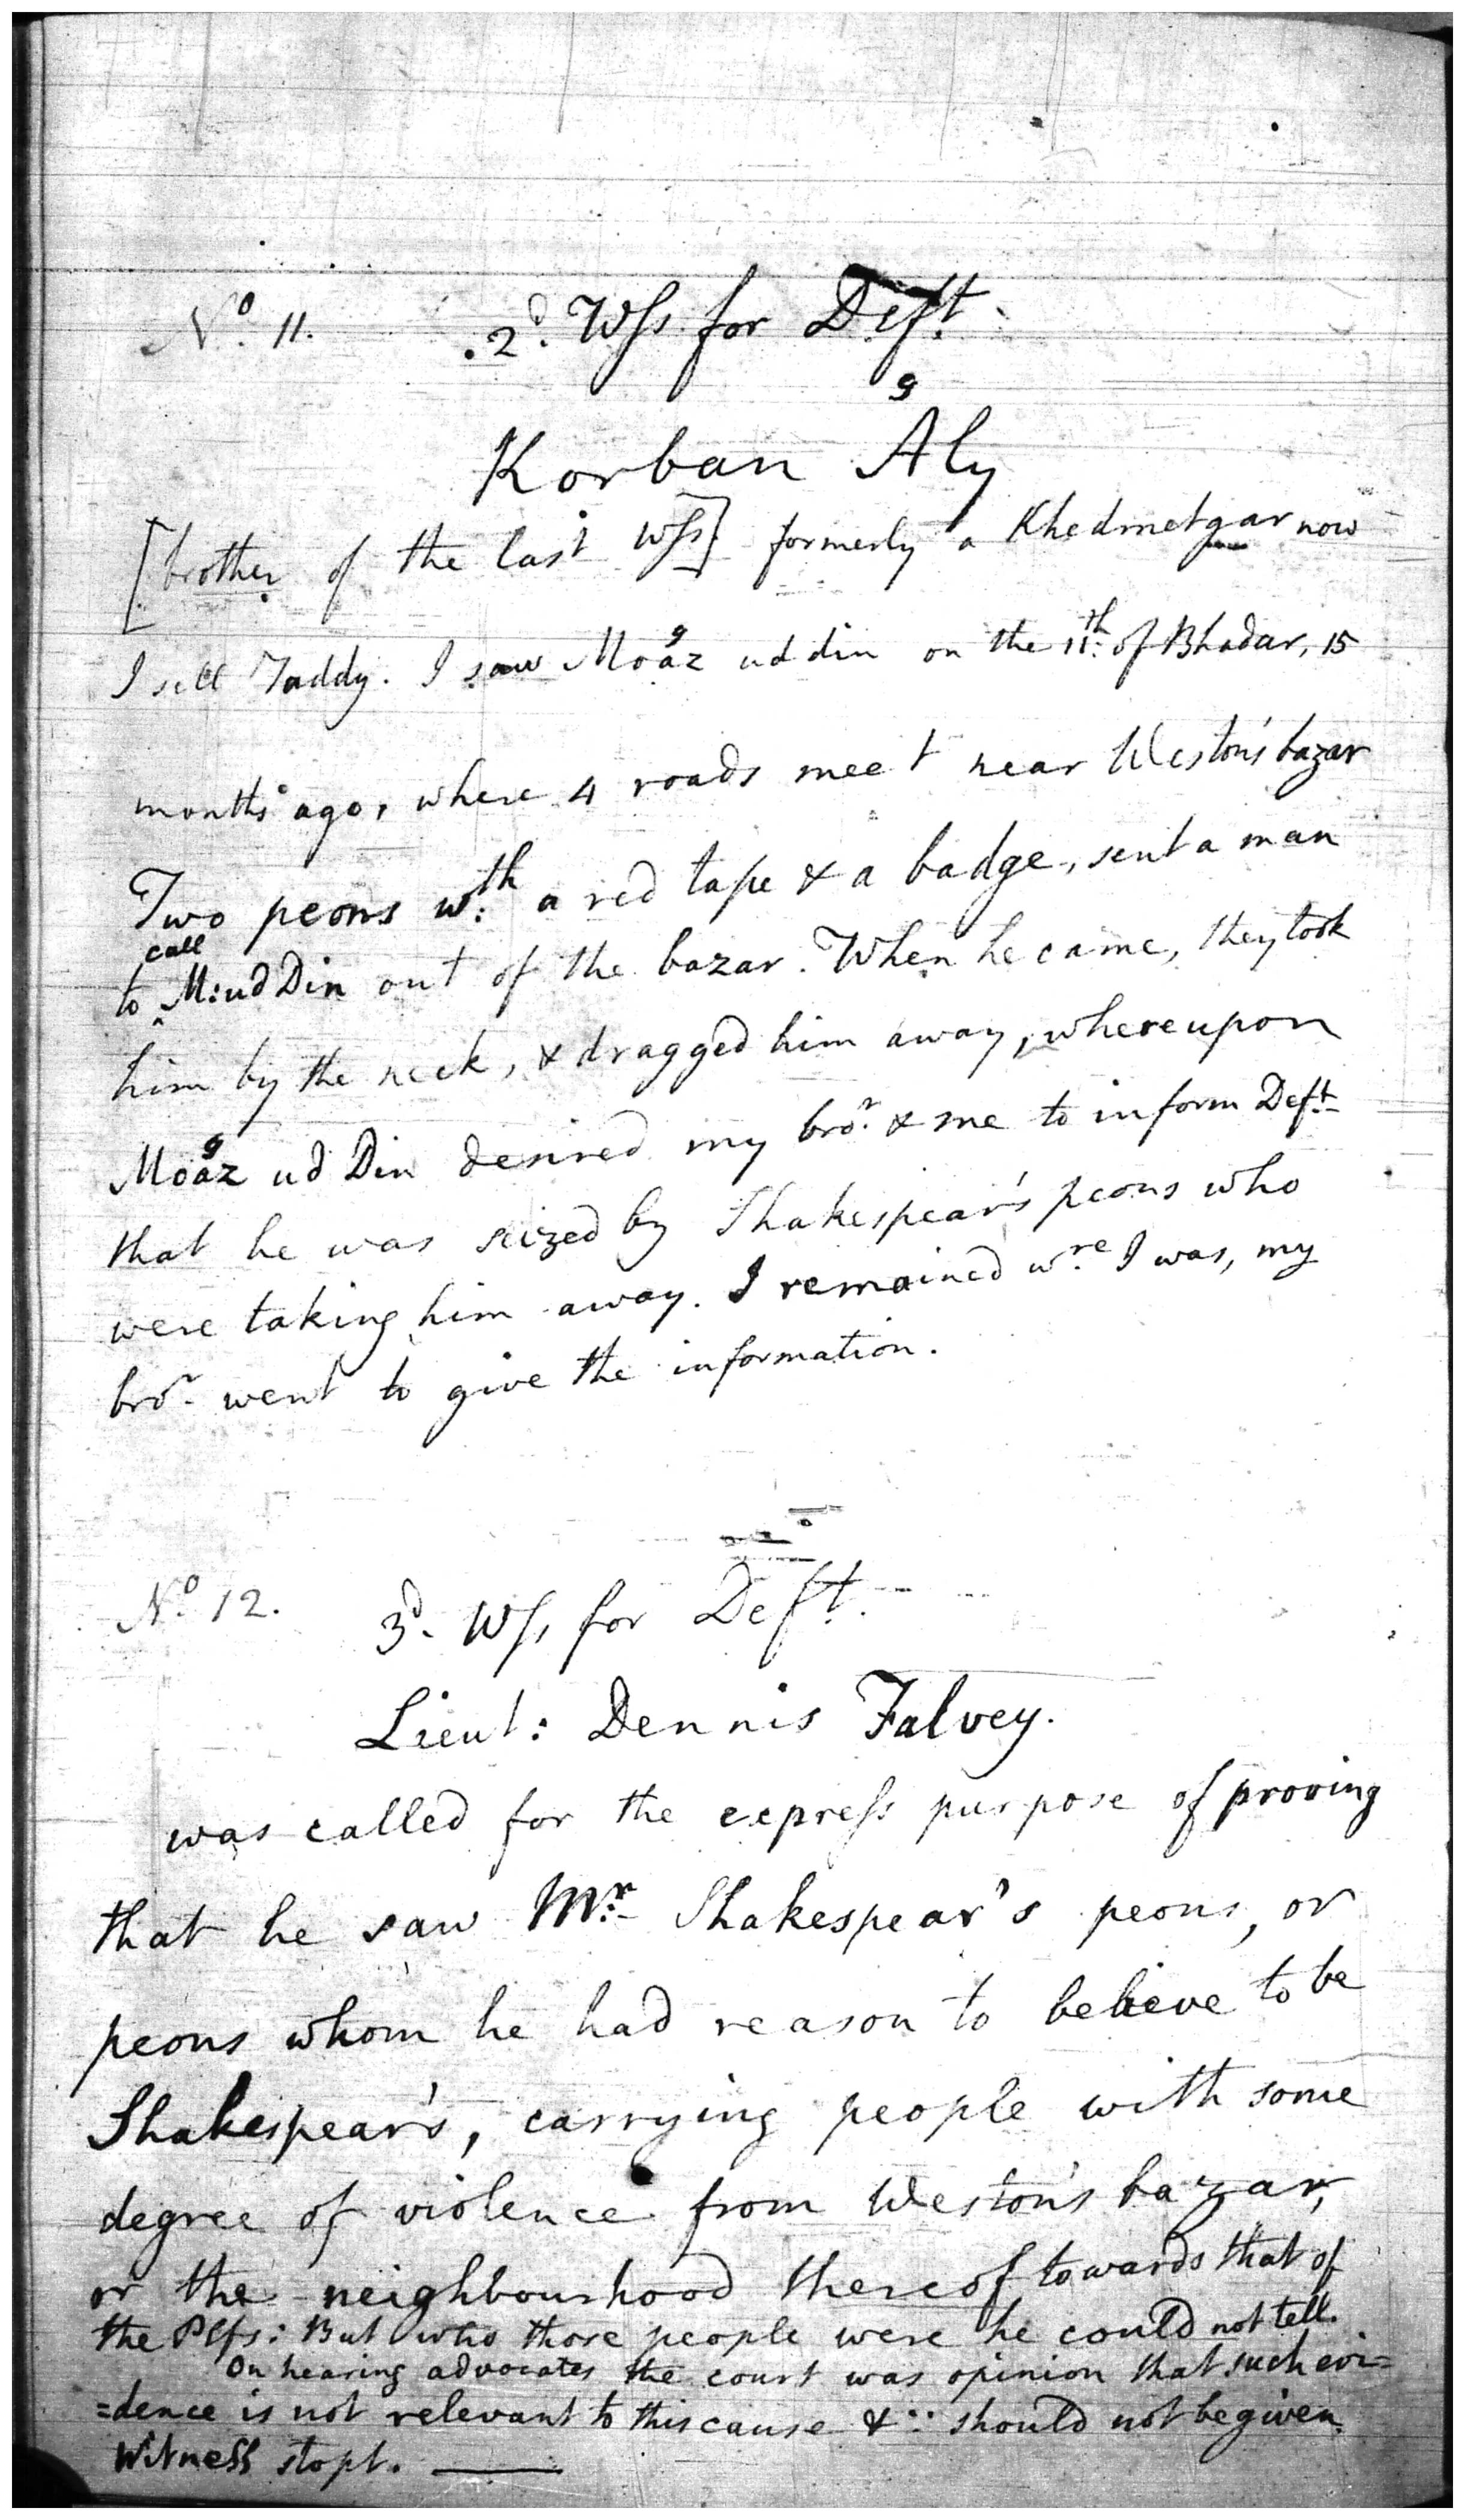 No. 11. 2d. Wss. for Deft.
Korban Aly
[brother of the last Wss] formerly a Khedmetgar now
I sell Taddy. I saw Moaz ud din on the 11th. of Bhadar, 15
months ago, where 4 roads meet near Weston's bazar
Two peons wth. a red tape & a badge, sent a man
call
to ^ M: ud Din out of the bazar. When he came, they took
him by the neck, & dragged him away, whereupon
Moaz ud Din desired my bror. & me to inform Deft.
that he was seized by Shakespear's peons who
were taking him away. I remained wre. I was, my
bror. went to give the information.
No. 12. 3d. Wss for Deft.
Lieut: Dennis Falvey.
was called for the express purpose of proving
that he saw Mr. Shakespear's peons, or
peons whom he had reason to believe to be
Shakespear's, carrying people with some
degree of violence from Weston's bazar,
or the neighbourhood thereof towards that of
the Plfs: But who those people were he could not tell.
On hearing advocates the court was opinion that such evi=
=dence is not relevant to this cause & ∵ should not be given.
Witness stopt. —